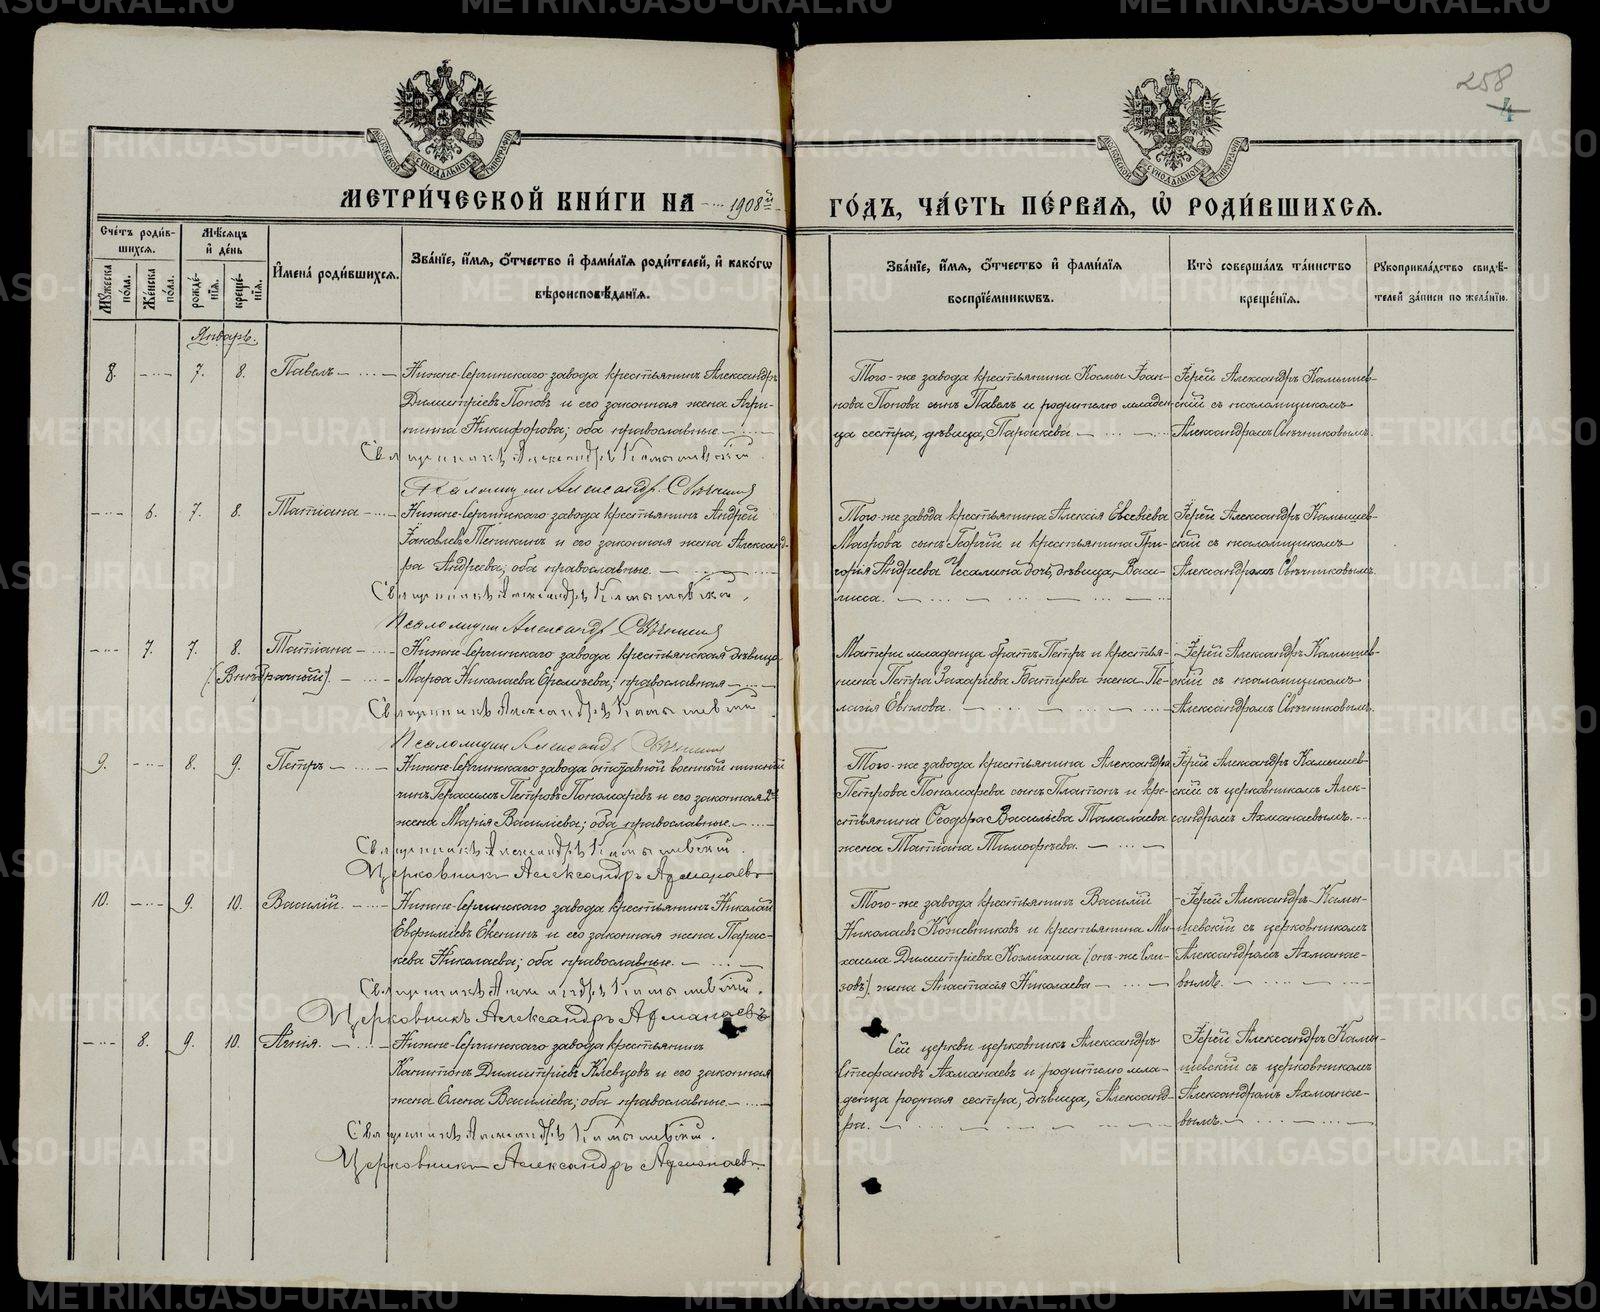 258
4
МЕТРИ́ЧЕСКОЙ КНИ́ГИ НА 1908й
ГО́ДЪ, ЧА́СТЬ ПЕ́РВАЯ, Ѽ РОДИ́ВШИХСѦ.
Сче́тъ роди́в-
шихсѧ.
Мꙋ́жеска по́ла.
Же́нска по́ла.
Мѣ́сѧцъ и҆ де́нь
рожде́-
нїѧ.
креще́-
нїѧ.
И҆мена̀ роди́вшихсѧ.
Зва́нїе, и҆́мѧ, ѻ҆́тчество и҆ фами́лїѧ роди́телей, и҆ како́гѡ
вѣроисповѣ́данїѧ.
Зва́нїе, и҆́мѧ, ѻ҆́тчество и҆ фами́лїѧ
воспрїе́мникѡвъ.
Кто̀ соверша́лъ та́инство
креще́нїѧ.
Рꙋкоприкла́дство свидѣ́-
телей за́писи по жела́нїю.
Январь.
8. 7. 8. Павелъ
Нижне-Сергинскаго завода крестьянинъ Александръ
Димитріевъ Поповъ и его законная жена Агри-
пина Никифорова; оба православные.
Священникъ Александръ Камышевскій.
Псаломщикъ Александр. Свѣчник
Того-же завода крестьянина Космы Іоан-
нова Попова сынъ Павелъ и родителю младен-
ца сестра, дѣвица, Параскева
Іерей Александръ Камышев-
скій съ псаломщикомъ
Александромъ Свѣчниковымъ.
6. 7. 8. Татіана
Нижне-Сергинскаго завода крестьянинъ Андрей
Іаковлевъ Тепикинъ и его законная жена Александ-
ра Андреева; оба православные.
Священникъ Александръ Камышевскій.
Псаломщик Александр Свѣчник
Того-же завода крестьянина Алексія Евсевіева
Мазрова сынъ Георгій и крестьянина Гри-
горія Андреева Чесалина дочь, дѣвица, Васи-
лисса.
Іерей Александръ Камышев-
скій съ псаломщикомъ
Александромъ Свѣчниковымъ.
7. 7. 8. Татіана
(Внѣбрачный).
Нижне-Сергинскаго завода крестьянская дѣвица
Марѳа Николаева Еремѣева; православная
Священникъ Александръ Камышевскій.
Псаломщик Александр Свѣчник
Матери младенца братъ Петръ и крестья-
нина Петра Захаріева Батуева жена Пе-
лагія Евѳилова.
Іерей Александръ Камышев-
скій съ псаломщикомъ
Александромъ Свѣчниковымъ.
9. 8. 9. Петръ
Нижне-Сергинскаго завода отставной военный нижній
чинъ Герасимъ Петровъ Пономаревъ и его законная 2я
жена Марія Василіева; оба православные.
Священникъ Александръ Камышевскій.
Церковникъ Александръ Ахманаевъ
Того-же завода крестьянина Александра
Петрова Пономарева сынъ Платонъ и кре-
стьянина Ѳеодора Васильева Талалаева
жена Татіана Тимоѳѣева.
Іерей Александръ Камышев-
скій съ церковникомъ Алек-
сандромъ Ахманаевымъ.
10. 9. 10. Василій.
Нижне-Сергинскаго завода крестьянинъ Николай
Евфиміевъ Екенинъ и его законная жена Парас-
кева Николаева; оба православные.
Священникъ Александръ Камышевскій.
Церковникъ Александръ Ахманаевъ
Того-же завода крестьянинъ Василій
Николаевъ Кожевниковъ и крестьянина Ми-
хаила Димитріева Козмихина (онъ-же Сли-
зовъ), жена Анастасія Николаева
Іерей Александръ Камы-
шевскій съ церковникомъ
Александромъ Ахманае-
вымъ.
8. 9. 10. Агнія.
Нижне-Сергинскаго завода крестьянинъ
Капитонъ Димитріевъ Клевцовъ и его законная
жена Елена Василіева; оба православные.
Священникъ Александръ Камышевскій.
Церковникъ Александръ Ахманаевъ.
Сей церкви церковникъ Александръ
Стефановъ Ахманаевъ и родителю мла-
денца родная сестра, дѣвица, Александ-
ра.
Іерей Александръ Камы-
шевскій съ церковникомъ
Александромъ Ахманае-
вымъ.
METRIKI.GASO-URAL.RU